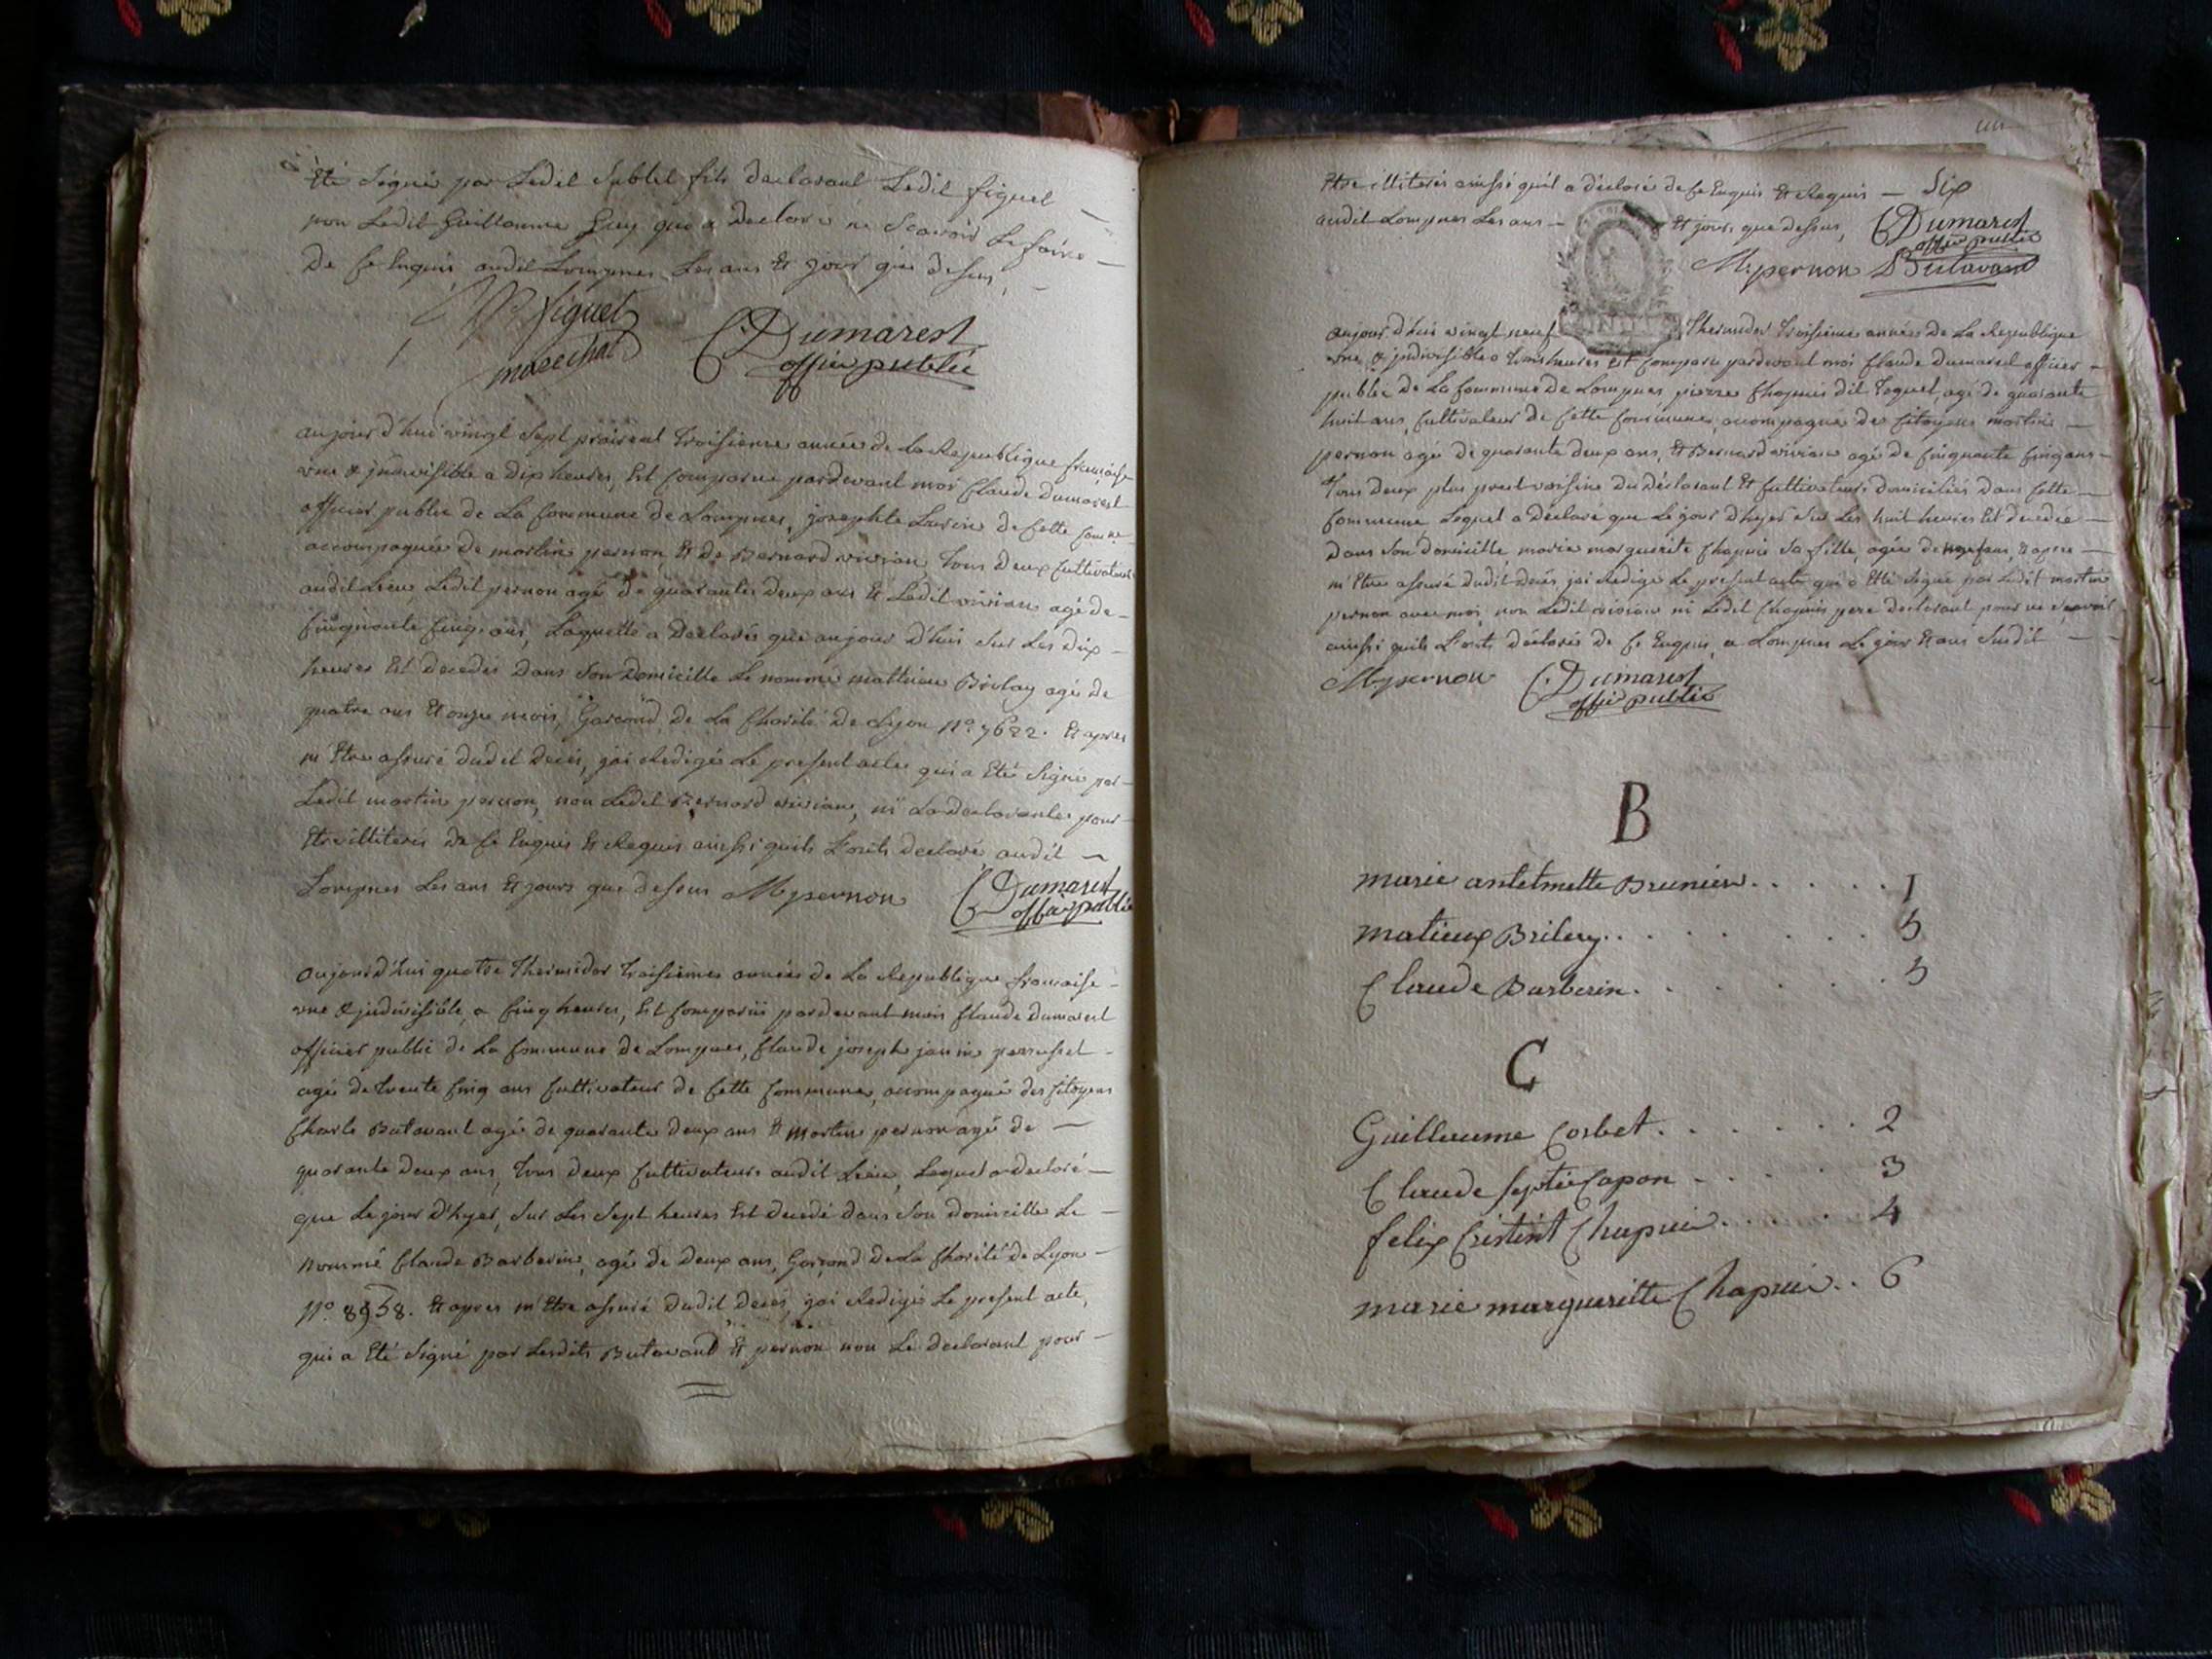 Eté Signé par Ledit Sublet fils declarant Ledit figuet
non Ledit Guillaume Guy qui a declaré ne Scavoir Le faire
De ce Enquis, audit Lompnes Les ans Et jour que dessus,
figuet
marechal
C. Dumarest
offiié publié
aujourd'hui vingt Sept prairial troisieme année de La Republique française
vne & jndivisible a Dix heures, Est Comparue pardevant moi Claude Dumarest
officier public de La Commune de Lompnes, josephte de Cette
accompagnée de martin pernon, Et de Bernard vivian, tous Deux Cultivateurs
audit Lieu, Ledit pernon agé de quarante Deux ans Et Ledit vivian agé de
Cinquante Cinq ans, Laquelle a Declaré que aujour D'hui Sur Les Dix
heures Est Decedé Dans Son Domicille Le nommé mathieu Brilay agé de
quatre ans Et onze mois, de La Charité De Lyon N° 7622. Et apres
m'Etre assuré Dudit Decès, jai Redigé Le present acte qui a Eté Signé par
Ledit martin pernon, non Ledit Bernard vivian, ni La Declarante pour
Etre illiterés De ce Enquis Et Requis ainssi quils L'onts declaré, audit
Lompnes Les ans Et jours que dessus M pernon
C. Dumarest
offiié publié
aujourd'hui quatre Thermidor troisieme année de La Republique francaise
vne & jndivisible, a Cinq heures, Est Comparu pardevant moi Claude Dumarest
officier public de La Commune de Lompnes, Claude joseph janin
agé de trente Cinq ans Cultivateur de Cette Commune, accompagné des Citoyens
Charle Butavant agé de quarante deux ans & martin pernon agé de
quarante deux ans, tous deux Cultivateurs audit Lieu, Lequel a declaré
que Le jour d'hyer, Sur Les Sept heures Est decedé dans Son domicille Le
nommé Claude Barberin, agé de Deux ans, de La Charité de Lyon
N° 8958. Et apres m'Etre assuré Dudit Decés, jai Redigé Le present acte,
qui a Eté Signé par Lesdits Butavant Et pernon non Le declarant pour
Etre illiterés ainssi quil a déclaré de ce Enquis Et Requis Six
audit Lompnes Les ans Et jours que dessus,
C Dumarest
offiié publié
M. pernon Butavand
aujourd'hui vingt neuf Thermidor troisieme année De La Republique
vne & jndivisible a heures Est Comparu pardevant moi Claude Dumarest officier
public de La Commune De Lompnes, pierre Chapuis dit agé de quarante
huit ans, Cultivateur de Cette Commune, accompagné des Citoyens martin
pernon agé De quarante deux ans, & Bernard vivian agé de Cinquante Cinq ans
tous deux plus du Déclarant Et Cultivateurs domiciliés Dans Cette
Commune, Lequel a Déclaré que Le jour d'hyer Sur Les huit heures Est decedée
Dans Son domicille marie marguerite Chapuis Sa fille, agée de ans, & apres
m'Etre assuré dudit Decés jai Redigé Le present acte qui a Eté Signé par Ledit martin
pernon avec moi, non Ledit vivian ni Ledit Chapuis pere declarant pour ne Scavoir
ainssi quils L'onts déclarés de ce Enquis, a Lompnes Le jour Et ans Susdit
M pernon C. Dumarest
offiié publié
B
marie antelmette Brunier. . . . . . 1
matieux Briley. . . . . . . 5
Claude Barberin. . . . . . 5
C
Guillaume Corbet. . . . . . . 2
Claude Capon . . . . 3
felix Chapuis. . . . . . 4
marie margueritte Chapuis. . 6